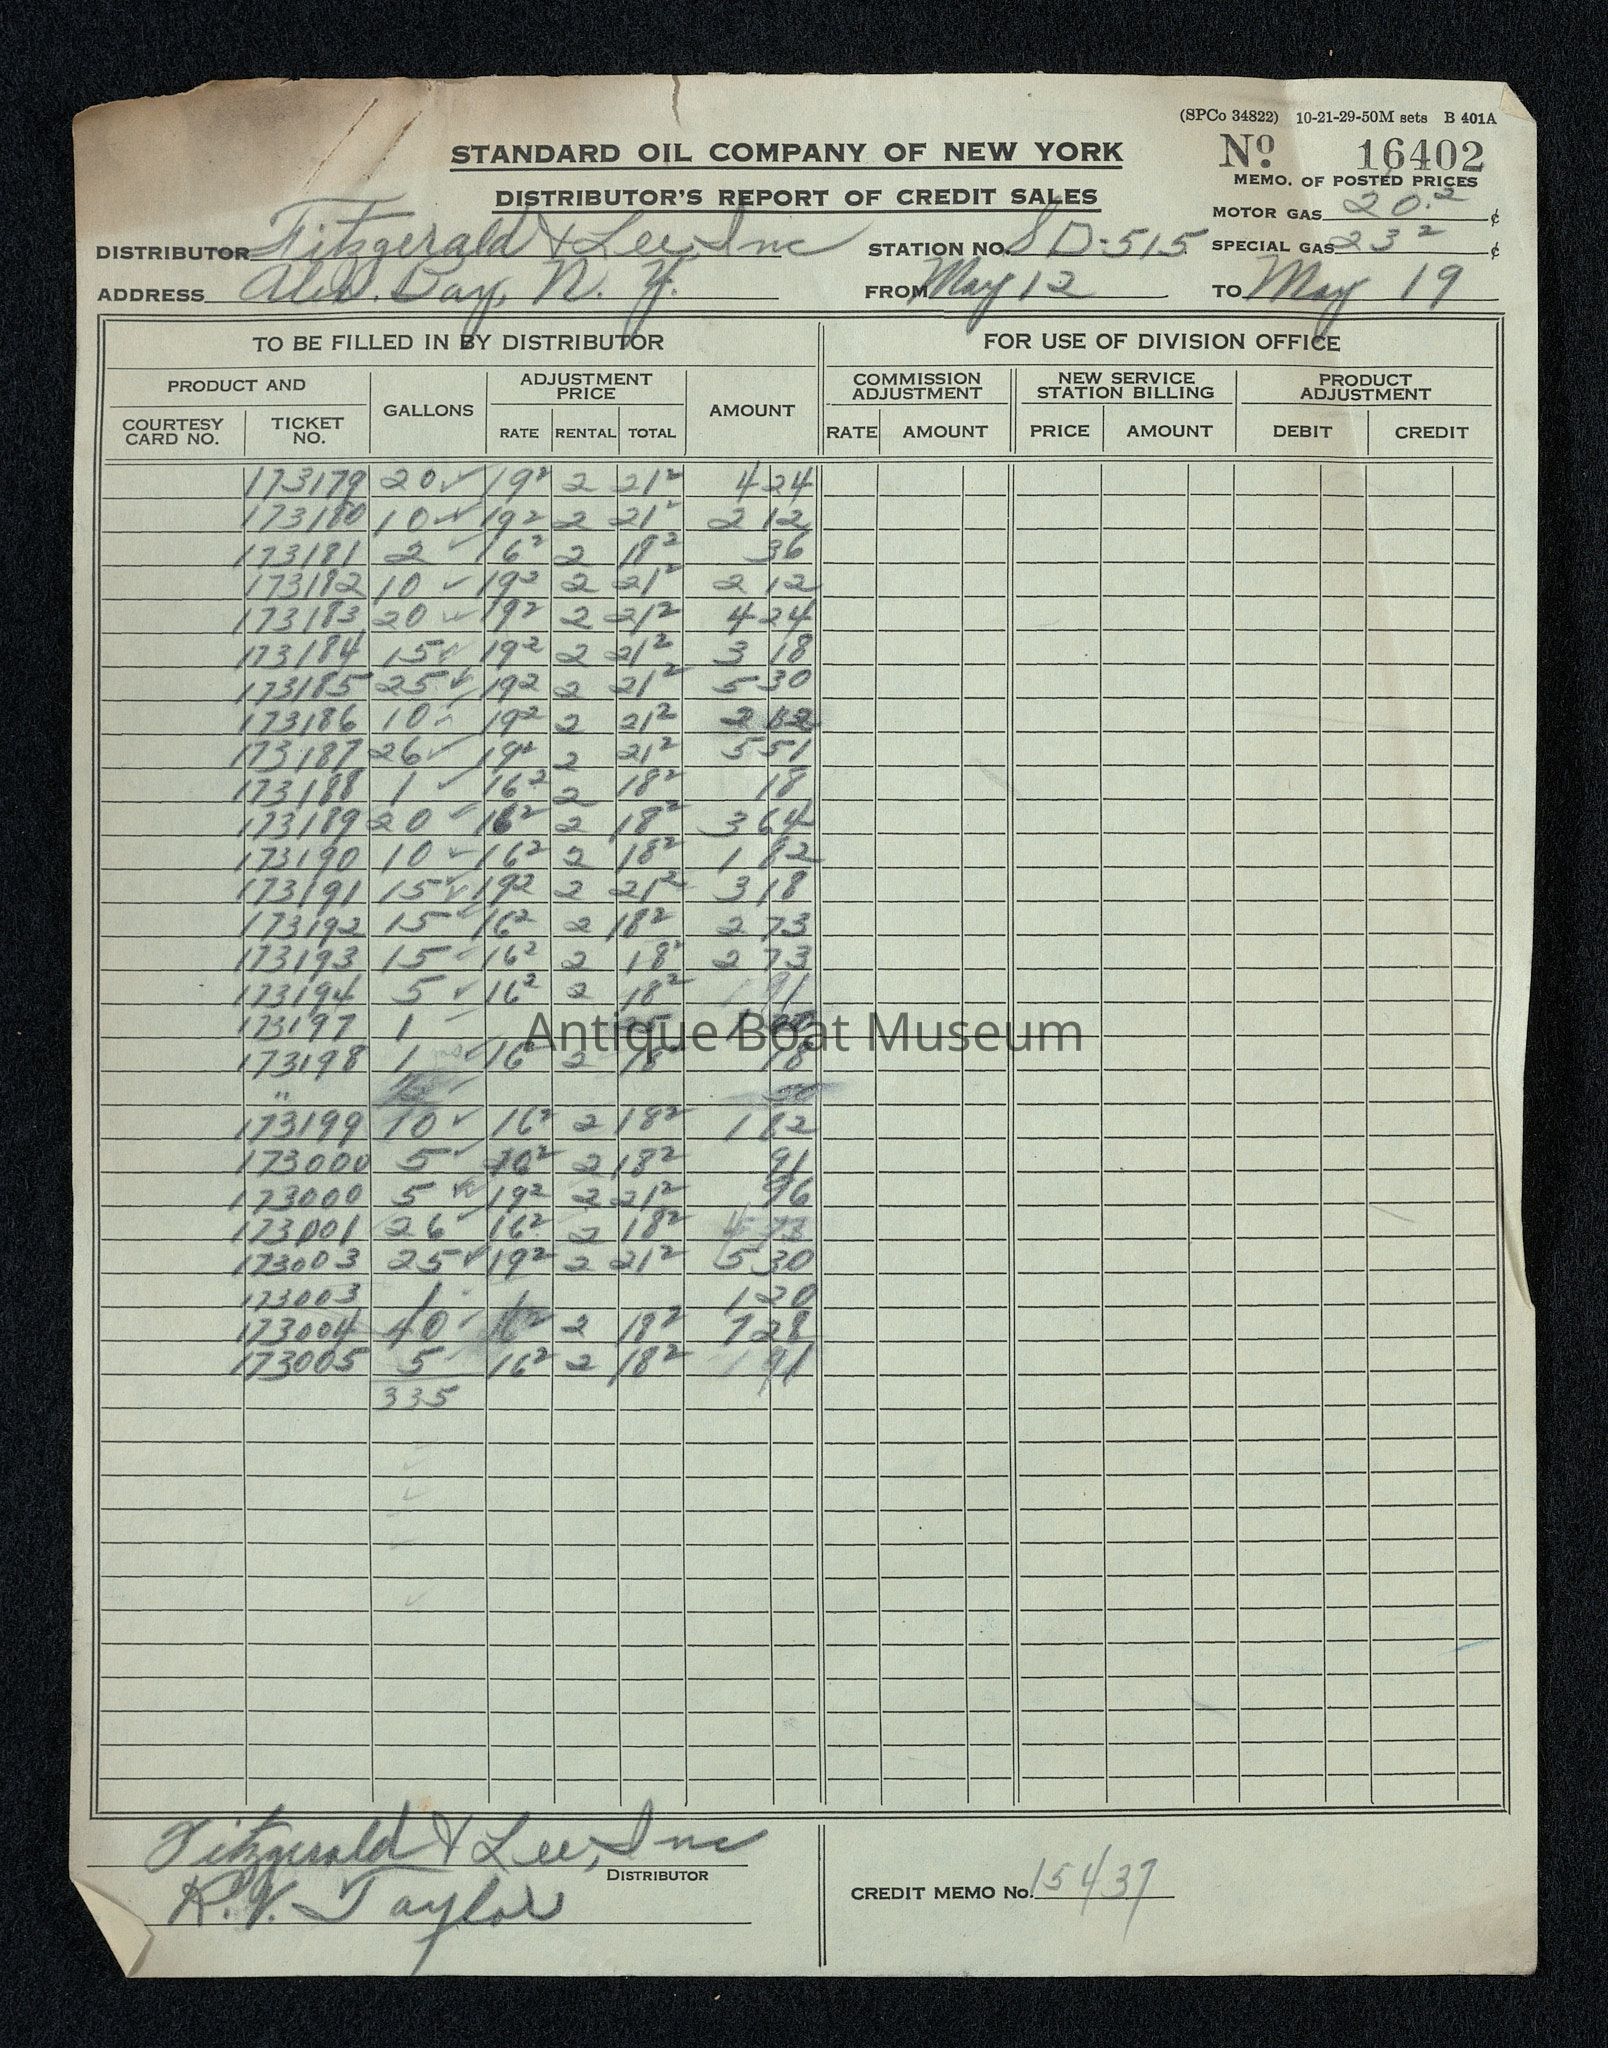 (SPCo 34822) 10-21-29-50M sets B 401A
STANDARD OIL COMPANY OF NEW YORK
No. 16402
DISTRIBUTOR'S REPORT OF CREDIT SALES
MEMO. OF POSTED PRICES
MOTOR GAS 20.2 ¢
DISTRIBUTOR Fitzgerald & Lee, Inc STATION NO. SD-515 SPECIAL GAS 23 2 ¢
ADDRESS Alex. Bay, N. Y. FROM May 12 TO May 19
TO BE FILLED IN BY DISTRIBUTOR FOR USE OF DIVISION OFFICE
PRODUCT AND GALLONS ADJUSTMENT PRICE AMOUNT COMMISSION ADJUSTMENT NEW SERVICE STATION BILLING PRODUCT ADJUSTMENT
COURTESY CARD NO. TICKET NO. RATE RENTAL TOTAL RATE AMOUNT PRICE AMOUNT DEBIT CREDIT
173179 20 ✓ 19 2 2 21 2 4 24
173180 10 ✓ 19 2 2 21 2 2 12
173181 2 ✓ 16 2 2 18 2 36
173182 10 ✓ 19 2 2 21 2 2 12
173183 20 ✓ 19 2 2 21 2 4 24
173184 15 ✓ 19 2 2 21 2 3 18
173185 25 ✓ 19 2 2 21 2 5 30
173186 10 ✓ 19 2 2 21 2 2 12
173187 26 ✓ 19 2 2 21 2 5 51
173188 1 ✓ 16 2 2 18 2 18
173189 20 ✓ 16 2 2 18 2 3 64
173190 10 ✓ 16 2 2 18 2 1 82
173191 15 ✓ 19 2 2 21 2 3 18
173192 15 ✓ 16 2 2 18 2 2 73
173193 15 ✓ 16 2 2 18 2 2 73
173194 5 ✓ 16 2 2 18 2 91
173197 1 ✓
Antique Boat Museum
173198 1 ✓ 16 2 2 18 2 18
"
173199 10 ✓ 16 2 2 18 2 1 82
173000 5 ✓ 2 18 2 91
173000 5 ✓ 19 2 2 21 2 96
173001 26 ✓ 16 2 2 18 2 4 73
173003 25 ✓ 19 2 2 21 2 5 30
173003 1 1 20
173004 40 ✓ 16 2 2 18 2 7 28
173005 5 ✓ 16 2 2 18 2 91
335
Fitzgerald & Lee, Inc
DISTRIBUTOR
R. V. Taylor
CREDIT MEMO No. 15437